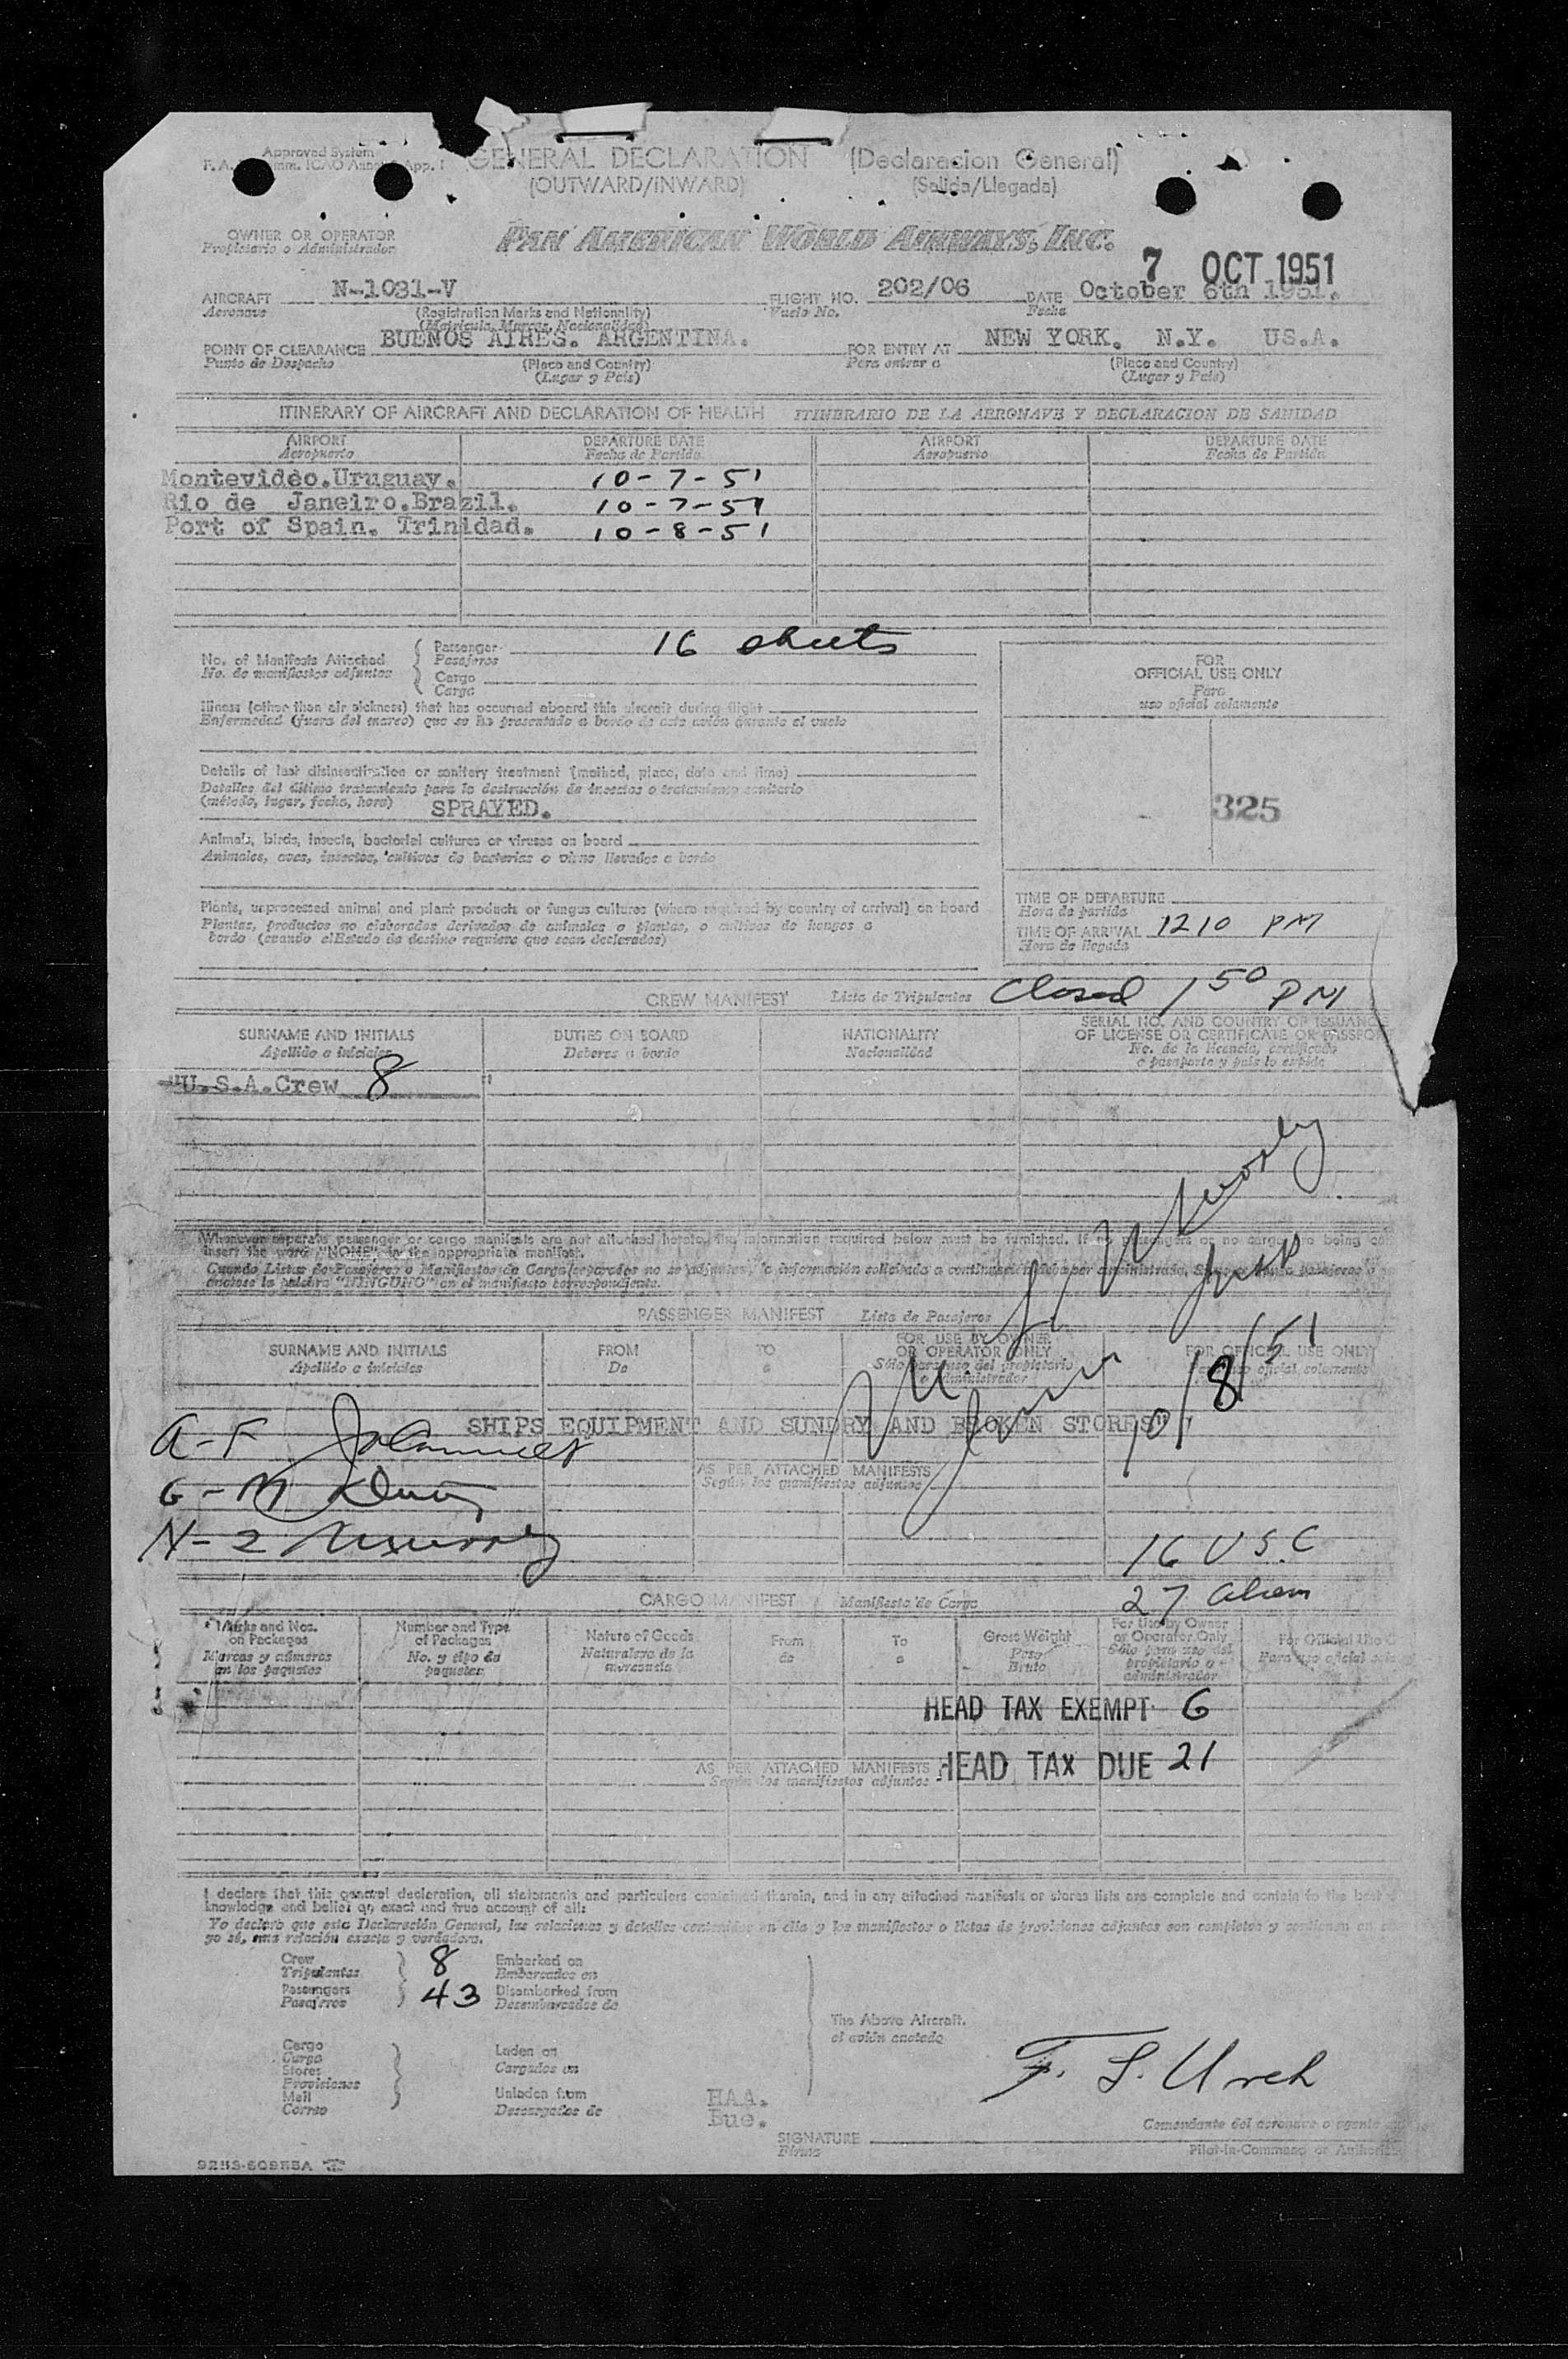 Approved System
GENERAL DECLARATION (Declaracion General)
(OUTWARD/INWARD) (Salida/Llegada)
OWNER OR OPERATOR
Propietario o Administrador
PAN AMERICAN WORLD AIRWAYS, INC.
7 OCT 1951
AIRCRAFT N-1031-V FLIGHT NO. 202/06 DATE October 6th 1951.
Aeronave (Registration Marks and Nationality) Vuelo No. Fecha
(Matricula, Marcas, Nacionalidad)
POINT OF CLEARANCE BUENOS AIRES. ARGENTINA. FOR ENTRY AT NEW YORK. N.Y. U.S.A.
Punto de Despacho (Place and Country) Para entrar a (Place and Country)
(Lugar y Pais) (Lugar y Pais)
ITINERARY OF AIRCRAFT AND DECLARATION OF HEALTH ITINERARIO DE LA AERONAVE Y DECLARACION DE SANIDAD
AIRPORT DEPARTURE DATE AIRPORT DEPARTURE DATE
Aeropuerto Fecha de Partida Aeropuerto Fecha de Partida
Montevideo.Uruguay. 10-7-51
Rio de Janeiro.Brazil. 10-7-51
Port of Spain. Trinidad. 10-8-51
No. of Manifests Attached Passenger 16 sheets
No. de manifiestos adjuntos Pasajeros
Cargo
Carga
FOR
OFFICIAL USE ONLY
Para
uso oficial solamente
Illness (other than air sickness) that has occurred aboard this aircraft during flight
Enfermedad (fuera del mareo) que se ha presentado a bordo de este avión durante el vuelo
Details of last disinsectization or sanitary treatment (method, place, date and time)
Detalles del último tratamiento para la destrucción de insectos o tratamiento sanitario
(método, lugar, fecha, hora) SPRAYED.
325
Animals, birds, insects, bacterial cultures or viruses on board
Animales, aves, insectos, cultivos de bacterias o virus llevados a bordo
Plants, unprocessed animal and plant products or fungus cultures (where required by country of arrival) on board
Plantas, productos no elaborados derivados de animales o plantas, o cultivos de hongos a
bordo (cuando el Estado de destino requiere que sean declarados)
TIME OF DEPARTURE
Hora de partida
TIME OF ARRIVAL 1210 PM
Hora de llegada
Closed 1 50 PM
CREW MANIFEST Lista de Tripulantes
SURNAME AND INITIALS DUTIES ON BOARD NATIONALITY SERIAL NO. AND COUNTRY OF ISSUANCE
Apellido e iniciales Deberes a bordo Nacionalidad OF LICENSE OR CERTIFICATE OR PASSPO
No. de la licencia, certificado
o pasaporte y pais lo expide
"U.S.A.Crew 8 "
Whenever separate passenger or cargo manifests are not attached hereto, the information required below must be furnished. If no passengers or no cargo are being
insert the word "NONE" in the appropriate manifest.
Cuando Listas de Pasajeros o Manifiestos de Carga separados no se adjuntan, la información solicitada a continuación
anótese la palabra "NINGUNO" en el manifiesto correspondiente.
PASSENGER MANIFEST Lista de Pasajeros
SURNAME AND INITIALS FROM TO FOR USE BY OWNER FOR OFFICIAL USE ONLY
Apellido e iniciales De a OR OPERATOR ONLY
Sólo para uso del propietario
o administrador
10/8/51
SHIPS EQUIPMENT AND SUNDRY AND BROKEN STORES"
A-F
AS PER ATTACHED MANIFESTS
Según los manifiestos adjuntos
G-M
N-Z
16 USC
27 Alien
CARGO MANIFEST Manifiesto de Carga
Marks and Nos. Number and Type Nature of Goods From To Gross Weight For Use by Owner
on Packages of Packages Naturaleza de la de a Peso or Operator Only
Marcas y números No. y tipo de mercancía Bruto Sólo para uso del
en los paquetes paquetes propietario o
administrador
HEAD TAX EXEMPT 6
AS PER ATTACHED MANIFESTS HEAD TAX DUE 21
Según los manifiestos adjuntos
I declare that this general declaration, all statements and particulars contained therein, and in any attached manifests or stores lists are complete and contain to the best
knowledge and belief an exact and true account of all:
Yo declaro que esta Declaración General, las relaciones y detalles contenidos en ella y los manifiestos o listas de provisiones adjuntos son completos y contienen
yo sé, una relación exacta y verdadera.
Crew 8 Embarked on
Tripulantes Embarcados en
Passengers 43 Disembarked from
Pasajeros Desembarcados de
The Above Aircraft.
el avión anotado
Cargo Laden on
Carga Cargados en
Stores
Provisiones
Mail Unladen from HAA.
Correo Descargados de Bue.
F. S. Urch
SIGNATURE
Firma
Comandante del aeronave o agente
Pilot-in-Command or Authoriz